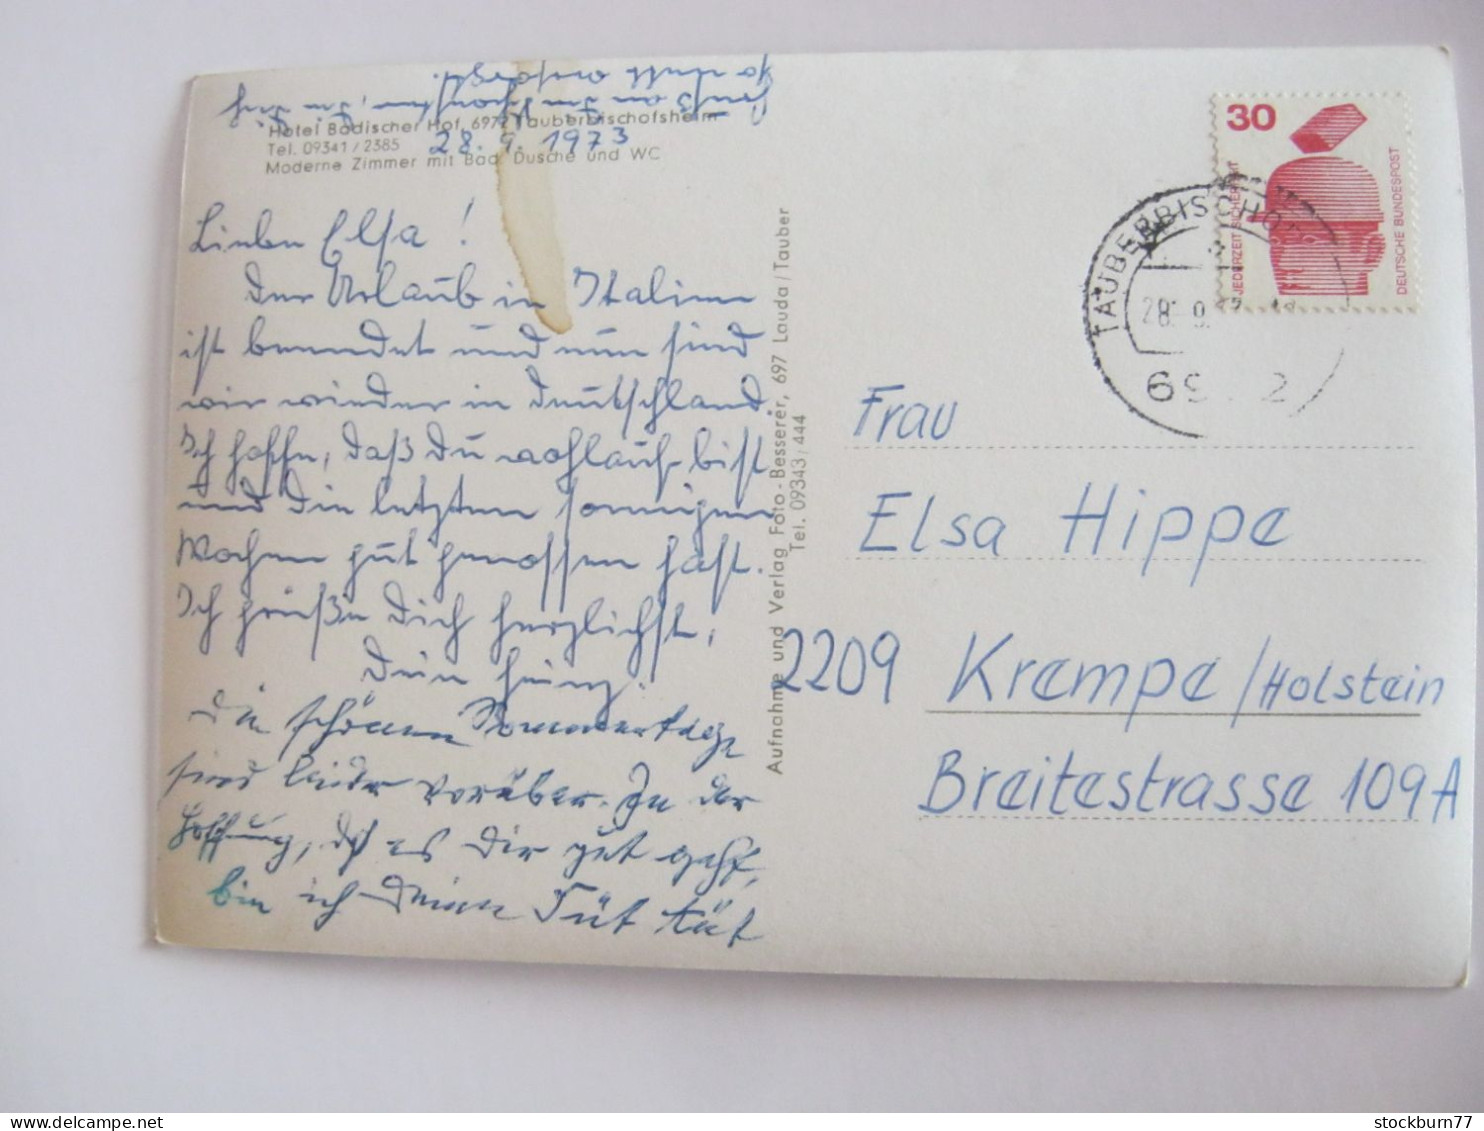 Hotel Badischer Hof, 6972 Tauberbischofsheim
Tel. 09341/2385
Moderne Zimmer mit Bad, Dusche und WC
28. 9. 1973
Liebe Elsa!
Der Urlaub in Italien
ist beendet und nun sind
wir wieder in Deutschland
Ich hoffe, daß Du wohlauf bist
und die letzten sonnigen
Wochen gut genossen hast.
Ich grüße Dich herzlichst,
Dein Heinz.
Die schönen Sommertage
sind leider vorüber. In der
Hoffnung, daß es Dir gut geht,
bin ich Deine
Gruß an
Aufnahme und Verlag Foto-Besserer, 697 Lauda/Tauber
Tel. 09343/444
30
JEDERZEIT SICHERHEIT
DEUTSCHE BUNDESPOST
TAUBERBISCHOF
28. 9.
69 2
Frau
Elsa Hippe
2209 Krempe /Holstein
Breitestrasse 109A
stockburn77